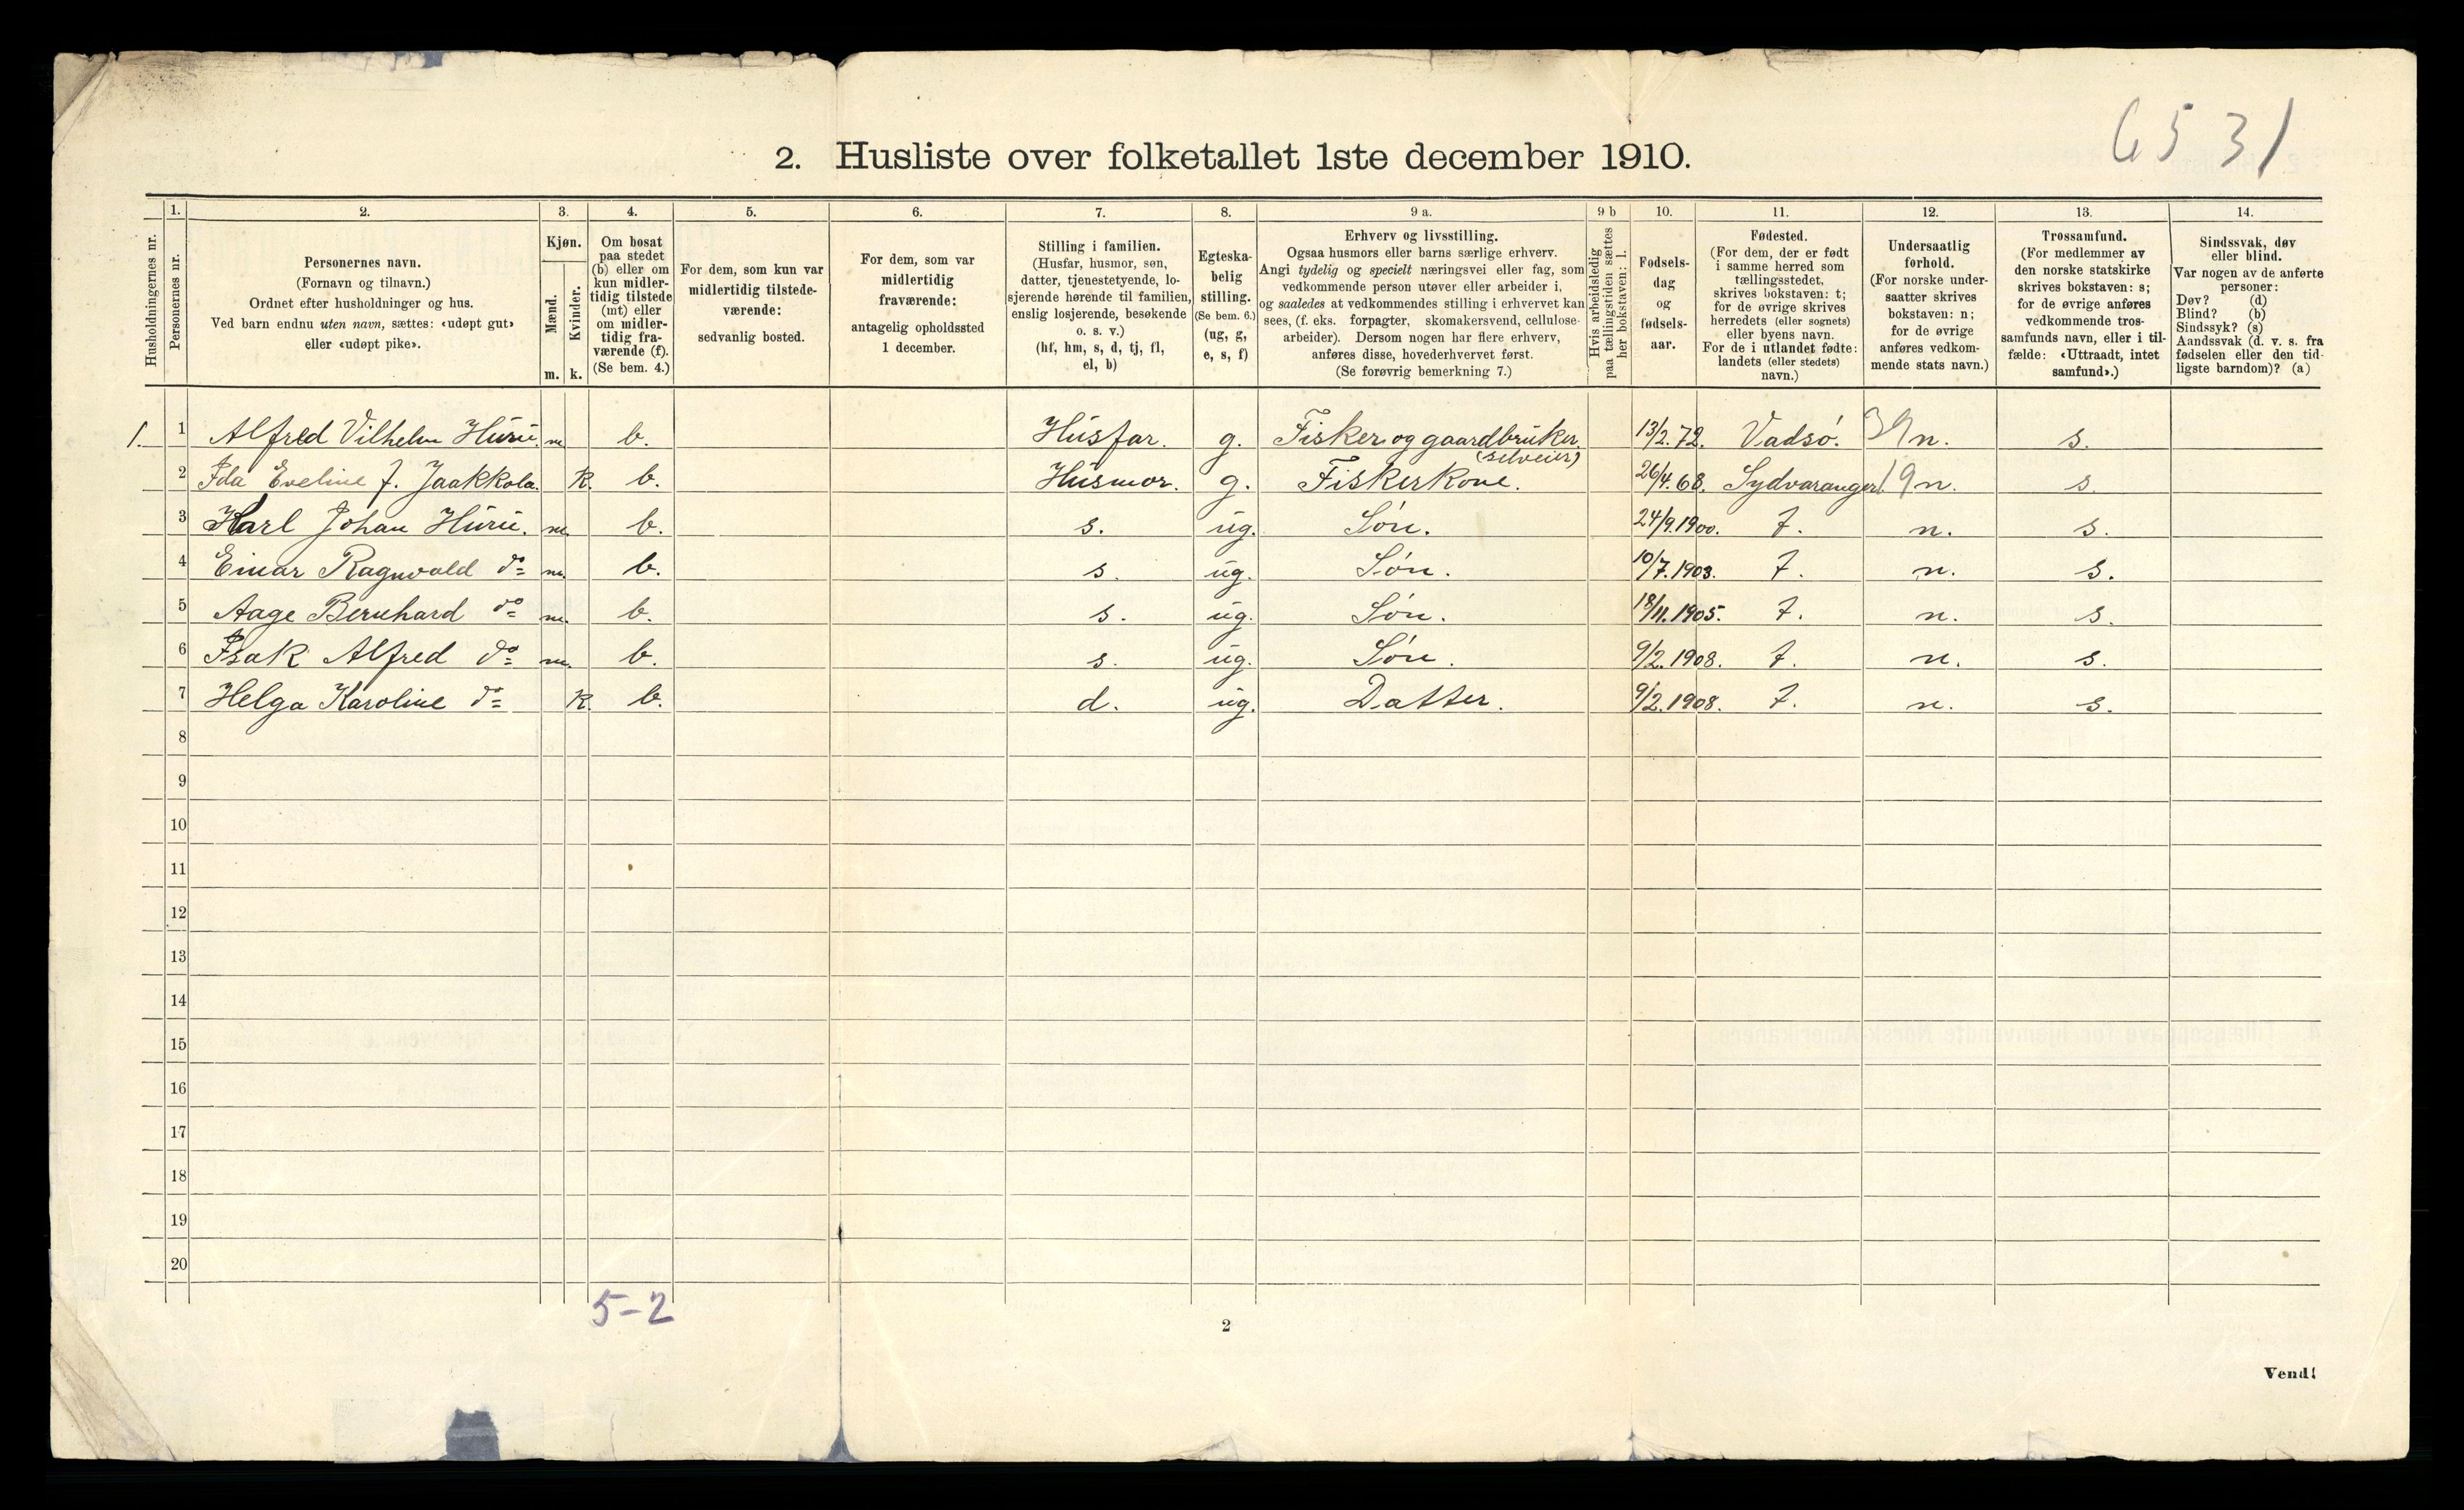 6531
2. Husliste over folketallet 1ste december 1910.
Husholdningernes nr.
1.
Personernes nr.
2.
Personernes navn.
(Fornavn og tilnavn.)
Ordnet efter husholdninger og hus.
Ved barn endnu uten navn, sættes: «udøpt gut»
eller «udøpt pike».
3.
Kjøn.
Mænd.
Kvinder.
m. k.
4.
Om bosat
paa stedet
(b) eller om
kun midler-
tidig tilstede
(mt) eller
om midler-
tidig fra-
værende (f).
(Se bem. 4.)
5.
For dem, som kun var
midlertidig tilstede-
værende:
sedvanlig bosted.
6.
For dem, som var
midlertidig
fraværende:
antagelig opholdssted
1 december.
7.
Stilling i familien.
(Husfar, husmor, søn,
datter, tjenestetyende, lo-
sjerende hørende til familien,
enslig losjerende, besøkende
o. s. v.)
(hf, hm, s, d, tj, fl,
el, b)
8.
Egteska-
belig
stilling.
(Se bem. 6.)
(ug, g,
e, s, f)
9 a.
Erhverv og livsstilling.
Ogsaa husmors eller barns særlige erhverv.
Angi tydelig og specielt næringsvei eller fag, som
vedkommende person utøver eller arbeider i,
og saaledes at vedkommendes stilling i erhvervet kan
sees, (f. eks. forpagter, skomakersvend, cellulose-
arbeider). Dersom nogen har flere erhverv,
anføres disse, hovederhvervet først.
(Se forøvrig bemerkning 7.)
9 b
Hvis arbeidsledig
paa tællingstiden sættes
her bokstaven: l.
10.
Fødsels-
dag
og
fødsels-
aar.
11.
Fødested.
(For dem, der er født
i samme herred som
tællingsstedet,
skrives bokstaven: t;
for de øvrige skrives
herredets (eller sognets)
eller byens navn.
For de i utlandet fødte:
landets (eller stedets)
navn.)
12.
Undersaatlig
forhold.
(For norske under-
saatter skrives
bokstaven: n;
for de øvrige
anføres vedkom-
mende stats navn.)
13.
Trossamfund.
(For medlemmer av
den norske statskirke
skrives bokstaven: s;
for de øvrige anføres
vedkommende tros-
samfunds navn, eller i til-
fælde: «Uttraadt, intet
samfund».)
14.
Sindssvak, døv
eller blind.
Var nogen av de anførte
personer:
Døv? (d)
Blind? (b)
Sindssyk? (s)
Aandssvak (d. v. s. fra
fødselen eller den tid-
ligste barndom)? (a)
1. 1 Alfred Vilhelm Huru. m b. Husfar. g. Fisker og gaardbruker. 13/2.72. Vadsö. 39 n. s.
(selveier)
2 Ida Eveline J. Jaakkola. k. b. Husmor. g. Fiskerkone. 26/4.68. Sydvaranger. 19 n. s.
3 Karl Johan Huru. m. b. s. ug. Søn. 24/9.1900. t. n. s.
4 Einar Ragnvald do m. b. s. ug. Søn. 10/7.1903. t. n. s.
5 Aage Bernhard do m. b. s. ug. Søn. 18/11.1905. t. n. s.
6 Isak Alfred do m. b. s. ug. Søn. 9/2.1908. t. n. s.
7 Helga Karoline do k. b. d. ug. Datter. 9/2.1908. t. n. s.
8
9
10
11
12
13
14
15
16
17
18
19
20
5-2
2
Vend!